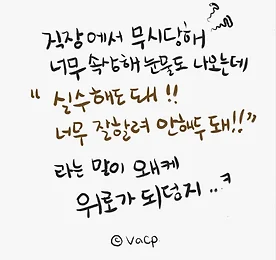 직장에서 무시당해
너무 속상해 눈물도 나오는데
“ 실수해도 돼 !!
너무 잘할려 안해두 돼!! ”
라는 말이 왜케
위로가 되덩지 ..ㅋ
ⓒ vacp